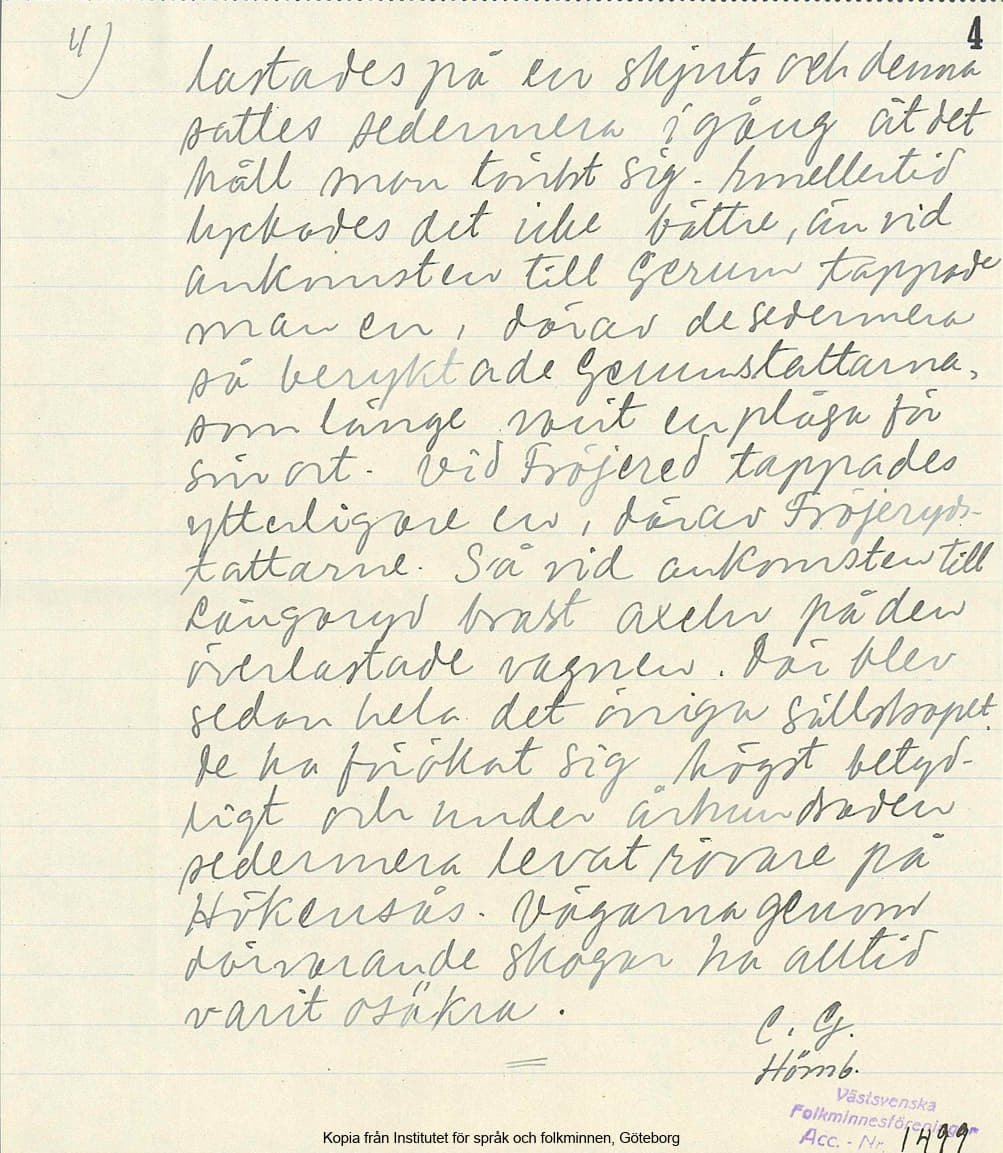 4)
4
lastades på en skjuts och denna
sattes sedermera igång åt det
håll man tänkt sig. Emellertid
lyckades det icke bättre, än vid
ankomsten till Gerum tappade
man en, därav de sedermera
så beryktade Gerumstattarna,
som länge varit en plåga för
sin ort. Vid Fröjered tappades
ytterligare en, därav Fröjeryds-
tattarne. Så vid ankomsten till
Långaryd brast axeln på den
överlastade vagnen. Där blev
sedan hela det övriga sällskapet.
De ha förökat sig högst betyd-
ligt och under århundraden
sedermera levat rövare på
Hökensås. Vägarna genom
därvarande skogar ha alltid
varit osäkra.
C. G.
Hömb.
Västsvenska
Folkminnesföreningen
Acc. - Nr. 1499
Kopia från Institutet för språk och folkminnen, Göteborg